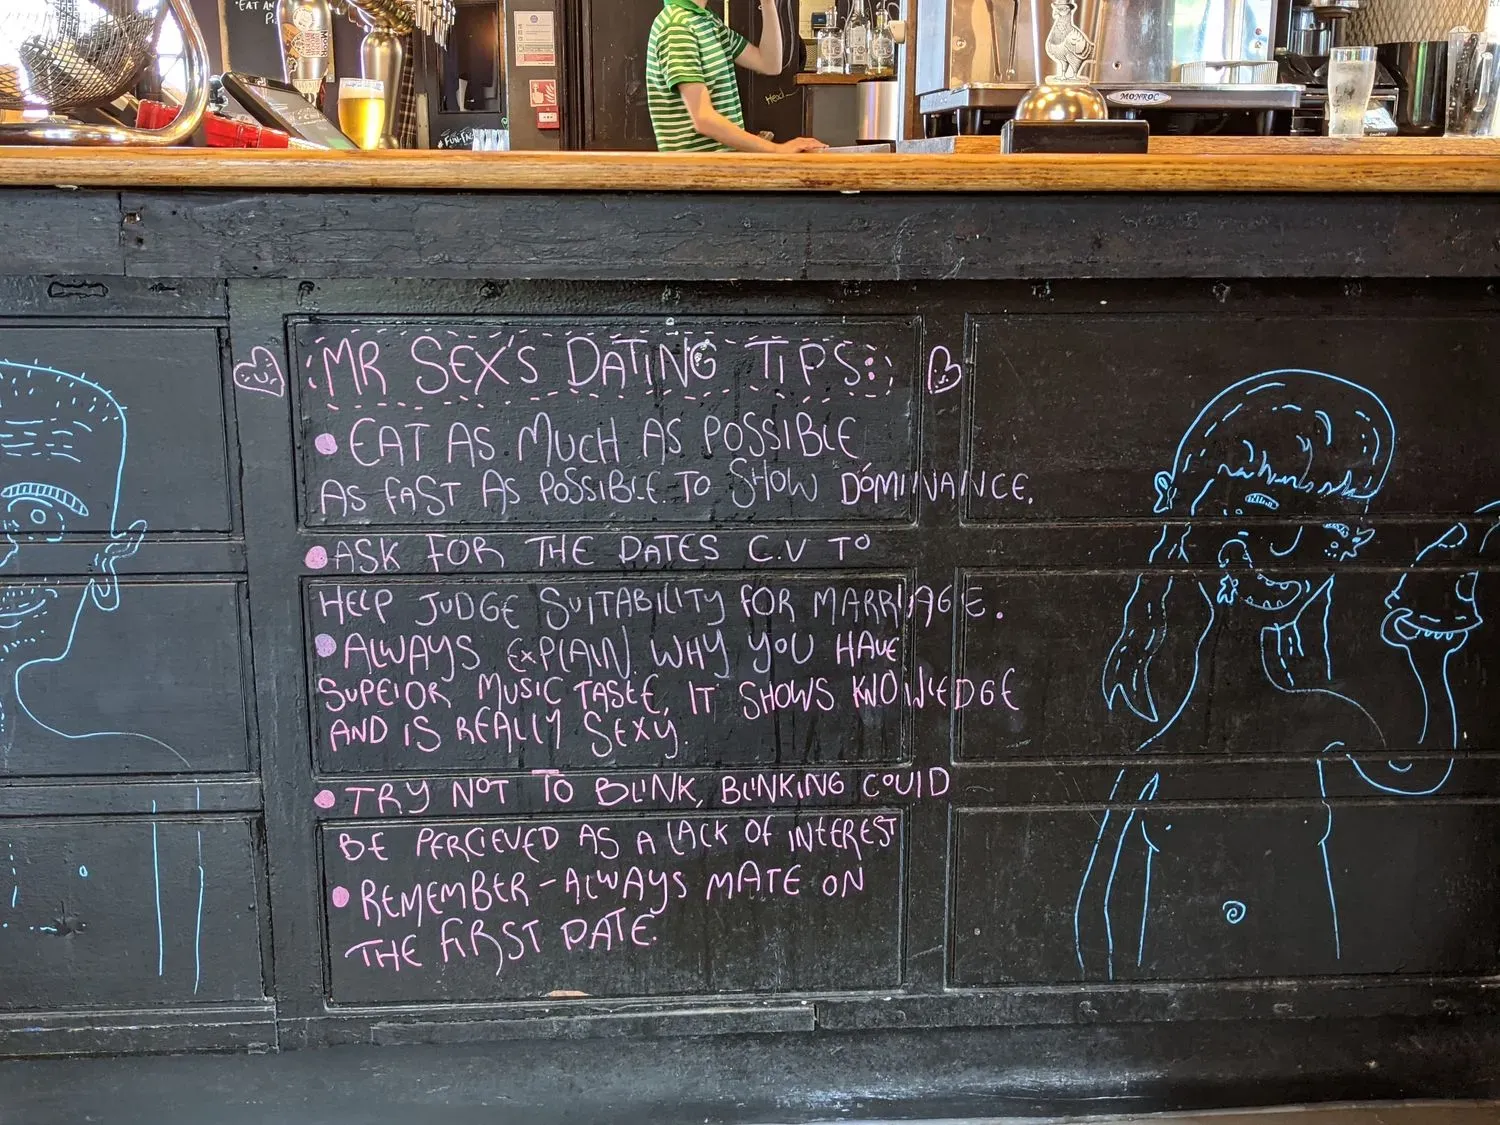 EAT AN
MONROC
Head
#FUN-FAC
MR SEX'S DATING TIPS:
• EAT AS MUCH AS POSSIBLE
AS FAST AS POSSIBLE TO SHOW DOMINANCE.
• ASK FOR THE DATES C.V TO
HELP JUDGE SUITABILITY FOR MARRIAGE.
• ALWAYS EXPLAIN WHY YOU HAVE
SUPEIOR MUSIC TASTE, IT SHOWS KNOWLEDGE
AND IS REALLY SEXY.
• TRY NOT TO BLINK, BLINKING COULD
BE PERCIEVED AS A LACK OF INTEREST
• REMEMBER - ALWAYS MATE ON
THE FIRST DATE.